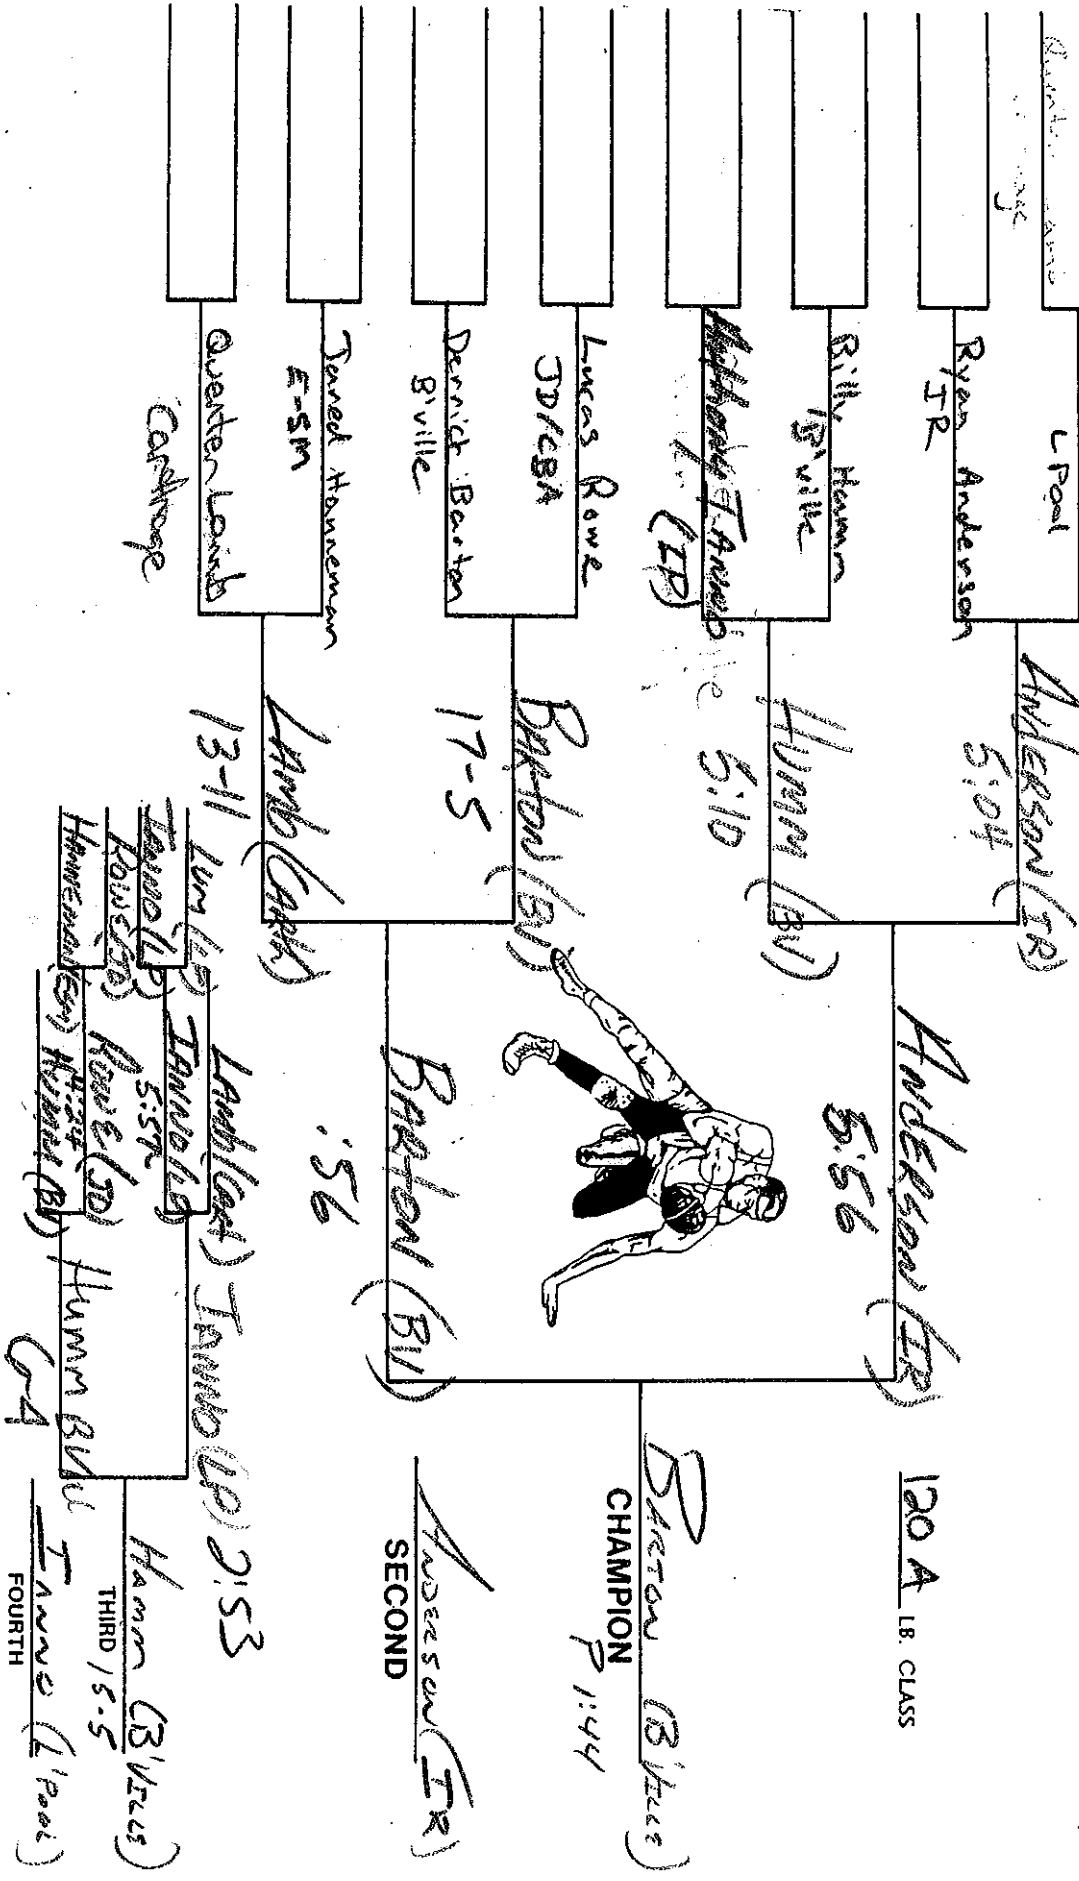 120 A LB. CLASS
L Pool
Ryan Anderson
IR
Billy Hamm
B'ville
Anthony IANNO
(LP)
Lucas Rowe
JD/CBA
Derrick Barton
B'ville
Jared Hanneman
E-SM
Quenten Lamb
Carthage
ANDERSON (IR)
5:04
HUMM (BV)
5:10
BARTON (BV)
17-5
LAMB (CARTH)
13-11
ANDERSON (IR)
5:56
BARTON (BV)
:56
BARTON (B'VILLE)
CHAMPION
P 1:44
ANDERSON (IR)
SECOND
LUM (LP)
IANNO (LP)
ROWE (JD)
HANNEMAN (ESM)
LAMB (CAR)
IANNO (LP)
5:57
ROWE (JD)
4:24
HUMM (BV)
IANNO (LP) 2:53
HUMM BV
6-4
HAMM (B'VILLE)
THIRD 15-5
IANNO (L'Pool)
FOURTH